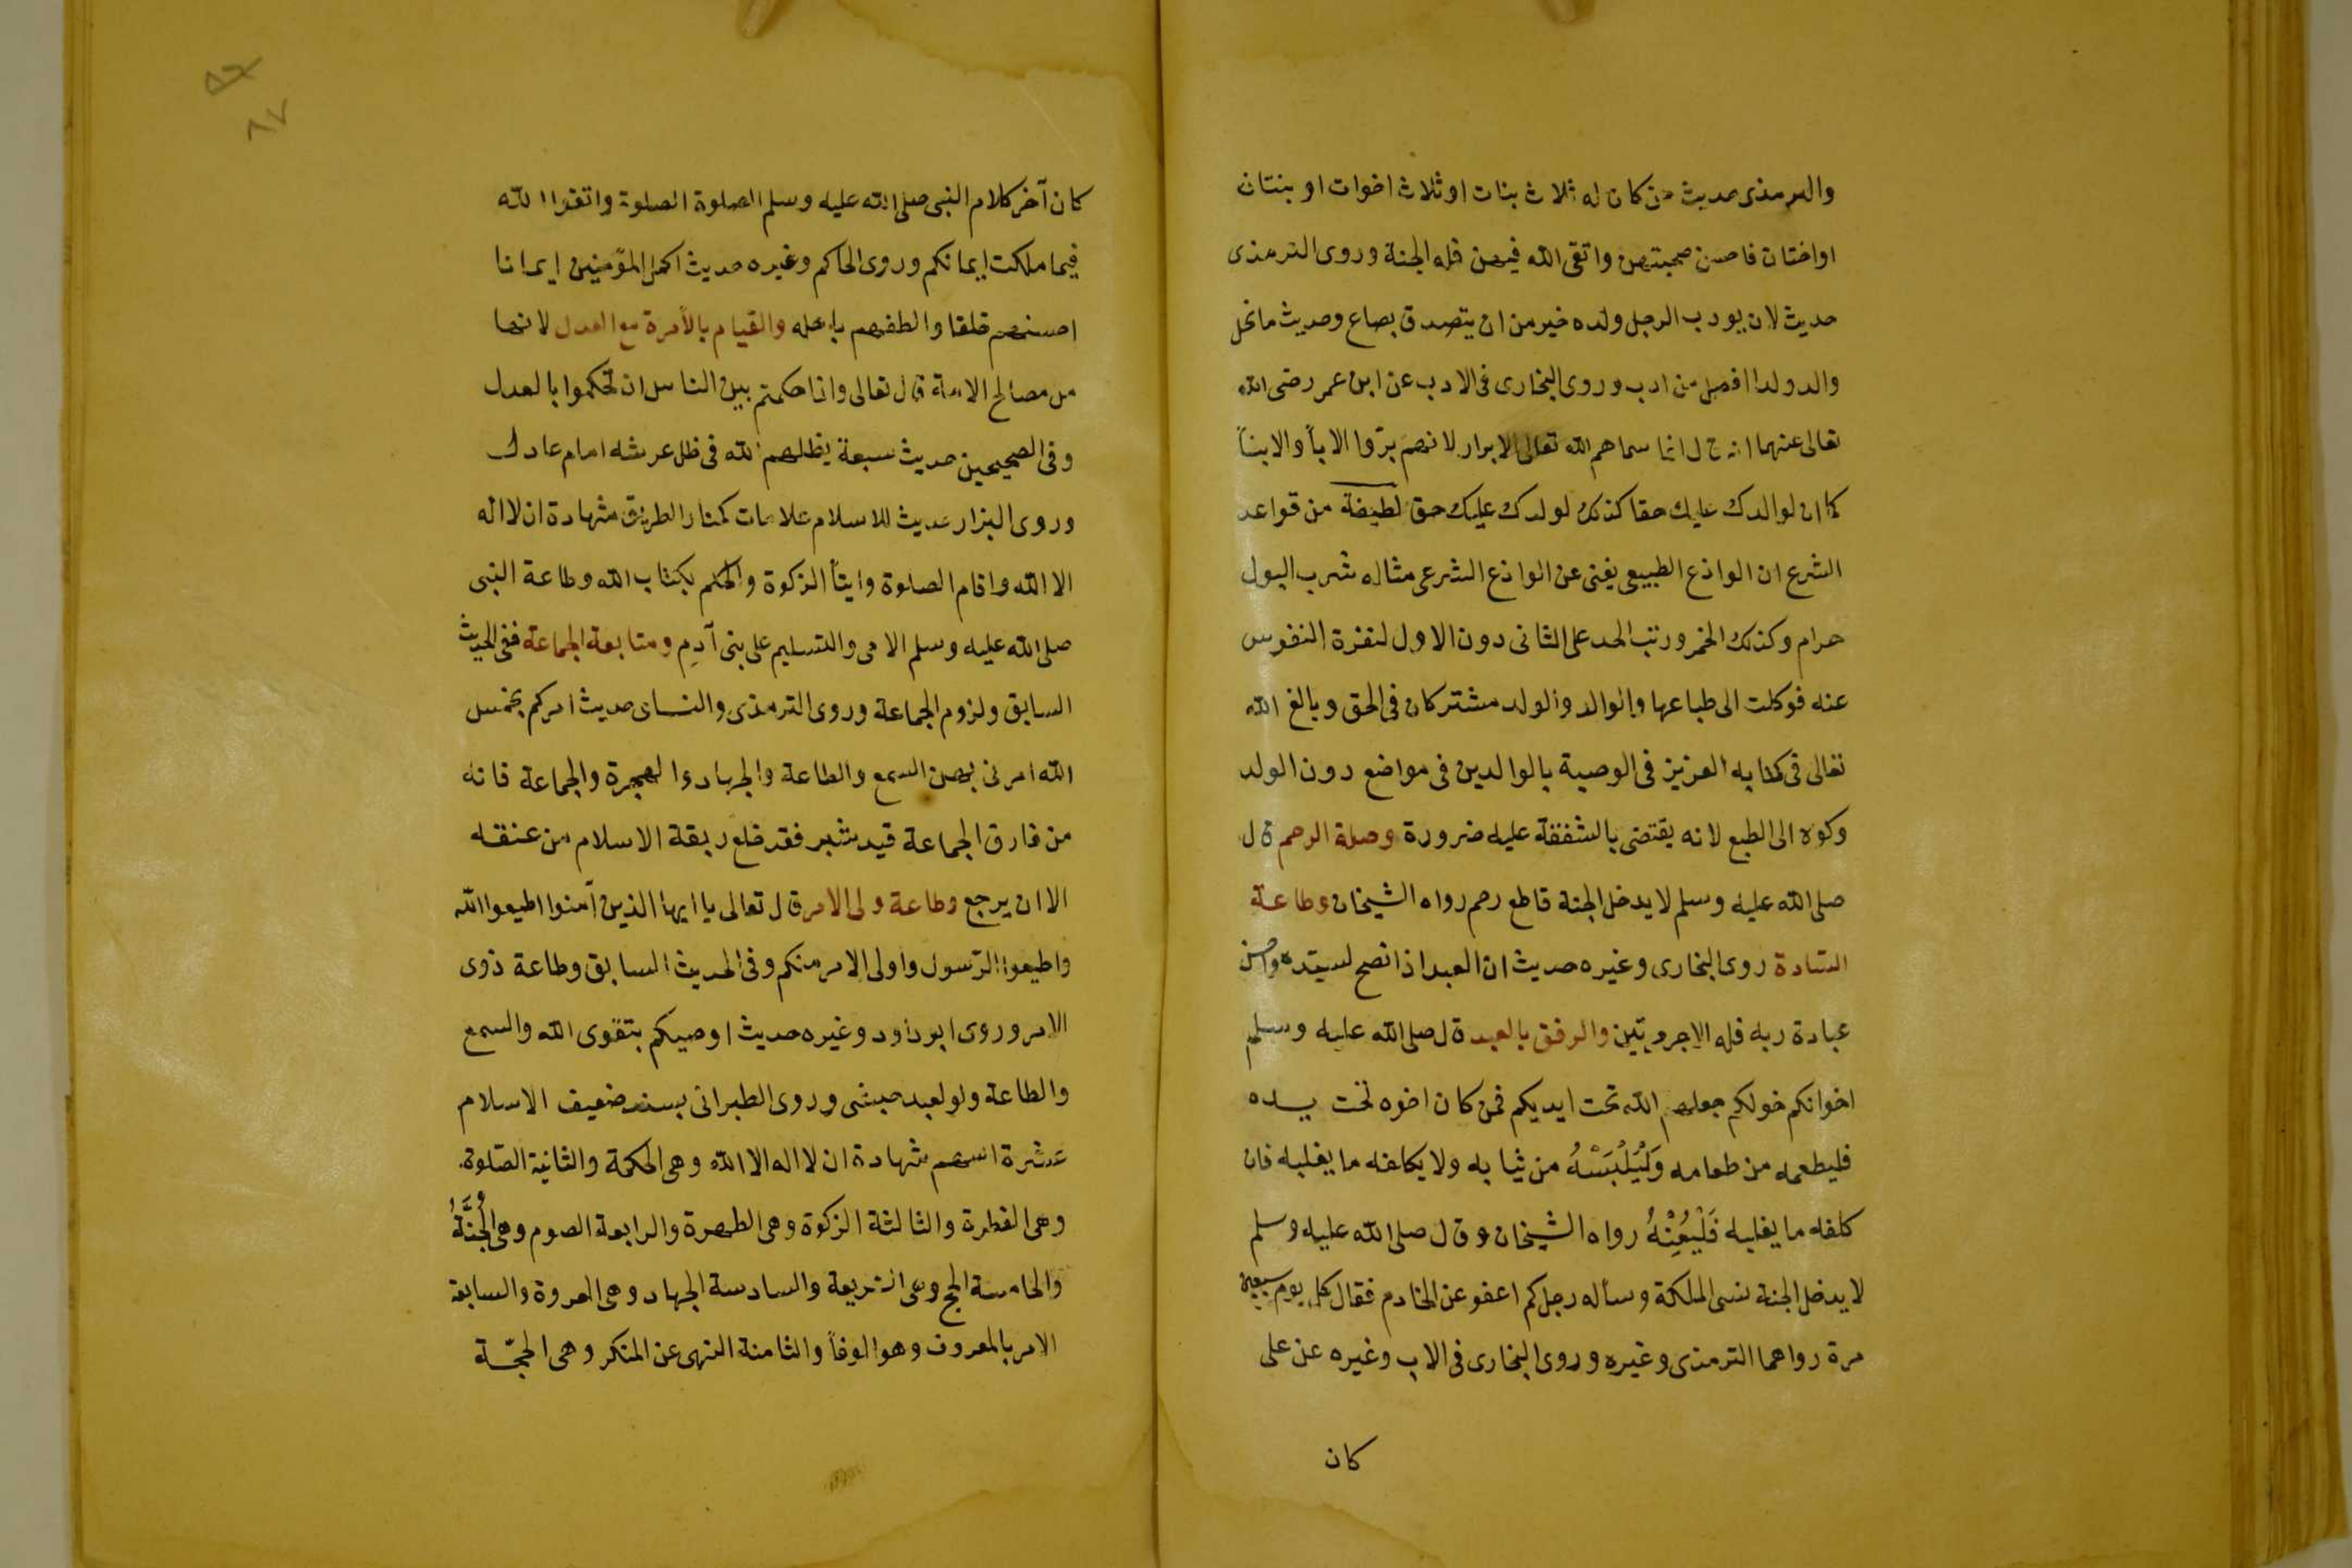 والترمذى حديث من كان له ثلاث بنات او ثلاث اخوات او بنتان
او اختان فاحسن صحبتهن واتقى الله فيهن فله الجنة وروى الترمذى
حديث لان يودب الرجل ولده خير من ان يتصدق بصاع وحديث ما نحل
والد ولدا افضل من ادب وروى البخارى فى الادب عن ابن عمر رضى الله
تعالى عنهما انه قال انما سماهم الله تعالى الابرار لانهم برّوا الابآ والابنآ
كما ان لوالدك عليك حقا كذلك لولدك عليك حق لطيفة من قواعد
الشرع ان الوازع الطبيعى يغنى عن الوازع الشرعى مثاله شرب البول
حرام وكذلك الخمر ورتب الحد على الثانى دون الاول لنفرة النفوس
عنه فوكلت الى طباعها والوالد والولد مشتركان فى الحق وبالغ الله
تعالى فى كتابه العزيز فى الوصية بالوالدين فى مواضع دون الولد
وكوه الى الطبع لانه يقتضى بالشفقة عليه ضرورة وصلة الرحم قال
صلى الله عليه وسلم لا يدخل الجنة قاطع رحم رواه الشيخان وطاعة
السّادة روى البخارى وغيره حديث ان العبد اذا نصح لسيّده واحسن
عبادة ربه فله الاجر مرتين والرفق بالعبد قال صلى الله عليه وسلم
اخوانكم خولكم جعلهم الله تحت ايديكم فمن كان اخوه تحت يده
فليطعمه من طعامه وَلْيُلْبِسْهُ من ثيابه ولا يكلفه ما يغلبه فان
كلفه ما يغلبه فَلْيُعِنْهُ رواه الشيخان وقال صلى الله عليه وسلم
لا يدخل الجنة سئ الملكة وسأله رجل كم اعفو عن الخادم فقال كل يوم سبعين
مرة رواهما الترمذى وغيره وروى البخارى فى الادب وغيره عن على
كان
٨٧
كان آخر كلام النبى صلى الله عليه وسلم الصلوة الصلوة واتقوا الله
فيما ملكت ايمانكم وروى الحاكم وغيره حديث اكمل المؤمنين ايمانا
احسنهم خلقا والطفهم باهله والقيام بالأمرة مع العدل لانها
من مصالح الامة قال تعالى واذا حكمتم بين الناس ان تحكموا بالعدل
وفى الصحيحين حديث سبعة يظلهم الله فى ظل عرشه امام عادل
وروى البزار حديث للاسلام علامات كمنار الطريق شهادة ان لا اله
الا الله واقام الصلوة وايتآ الزكوة والحكم بكتاب الله وطاعة النبى
صلى الله عليه وسلم الامى والتسليم على بنى آدم ومتابعة الجماعة ففى الحديث
السابق ولزوم الجماعة وروى الترمذى والنساى حديث امركم بخمس
الله امرنى بهن السمع والطاعة والجهاد والهجرة والجماعة فانه
من فارق الجماعة قيد شبر فقد خلع ربقة الاسلام من عنقه
الا ان يرجع وطاعة ولى الامر قال تعالى يا ايها الذين آمنوا اطيعوا الله
واطيعوا الرّسول واولى الامر منكم وفى الحديث السابق وطاعة ذوى
الامر وروى ابو داود وغيره حديث اوصيكم بتقوى الله والسمع
والطاعة ولو لعبد حبشى وروى الطبرانى بسند ضعيف الاسلام
عشرة اسهم شهادة ان لا اله الا الله وهى الحكمة والثانية الصّلوة
وهى الفطرة والثالثة الزكوة وهى الطهرة والرابعة الصوم وهى الْجُنَّةُ
والخامسة الحج وهى الشريعة والسادسة الجهاد وهى العروة والسابعة
الامر بالمعروف وهو الوفآ والثامنة النهى عن المنكر وهى الحجّة